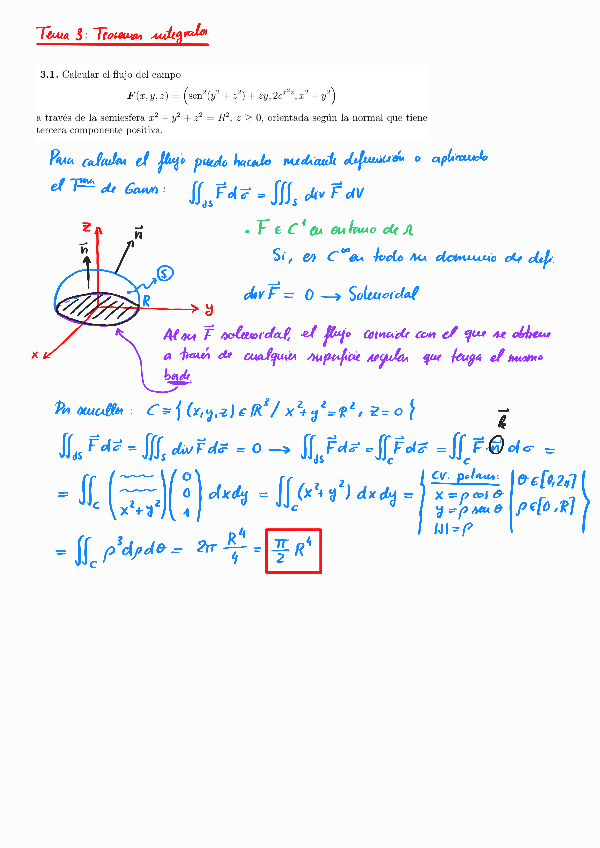 Tema 3: Teoremas integrales
3.1. Calcular el flujo del campo
F(x, y, z) = (sen²(y² + z²) + zy, 2e^{x²z}, x² + y²)
a través de la semiesfera x² + y² + z² = R², z ≥ 0, orientada según la normal que tiene
tercera componente positiva.
Para calcular el flujo puedo hacerlo mediante definición o aplicando
el Tma de Gauss: ∬_{∂S} F⃗ dσ⃗ = ∭_S div F⃗ dV
• F ∈ C¹ en entorno de Ω
Si, es C^∞ en todo su dominio de def.
div F⃗ = 0 → Solenoidal
z
n⃗
n⃗
S
R
y
x
Al ser F⃗ solenoidal, el flujo coincide con el que se obtiene
a través de cualquier superficie regular que tenga el mismo
borde
Por sencillez: C = {(x,y,z) ∈ ℝ³ / x²+y²=R², z=0}
k⃗
∬_{∂S} F⃗ dσ⃗ = ∭_S div F⃗ dσ = 0 → ∬_{∂S} F⃗ dσ⃗ = ∬_C F⃗ dσ⃗ = ∬_C F⃗ · n dσ =
= ∬_C (~~ ~~ x²+y²) (0 0 1) dxdy = ∬_C (x²+y²) dxdy = { CV. polares: x = ρ cos θ y = ρ sen θ |J| = ρ | θ ∈ [0,2π] ρ ∈ [0,R] }
= ∬_C ρ³ dρ dθ = 2π R⁴/4 = π/2 R⁴